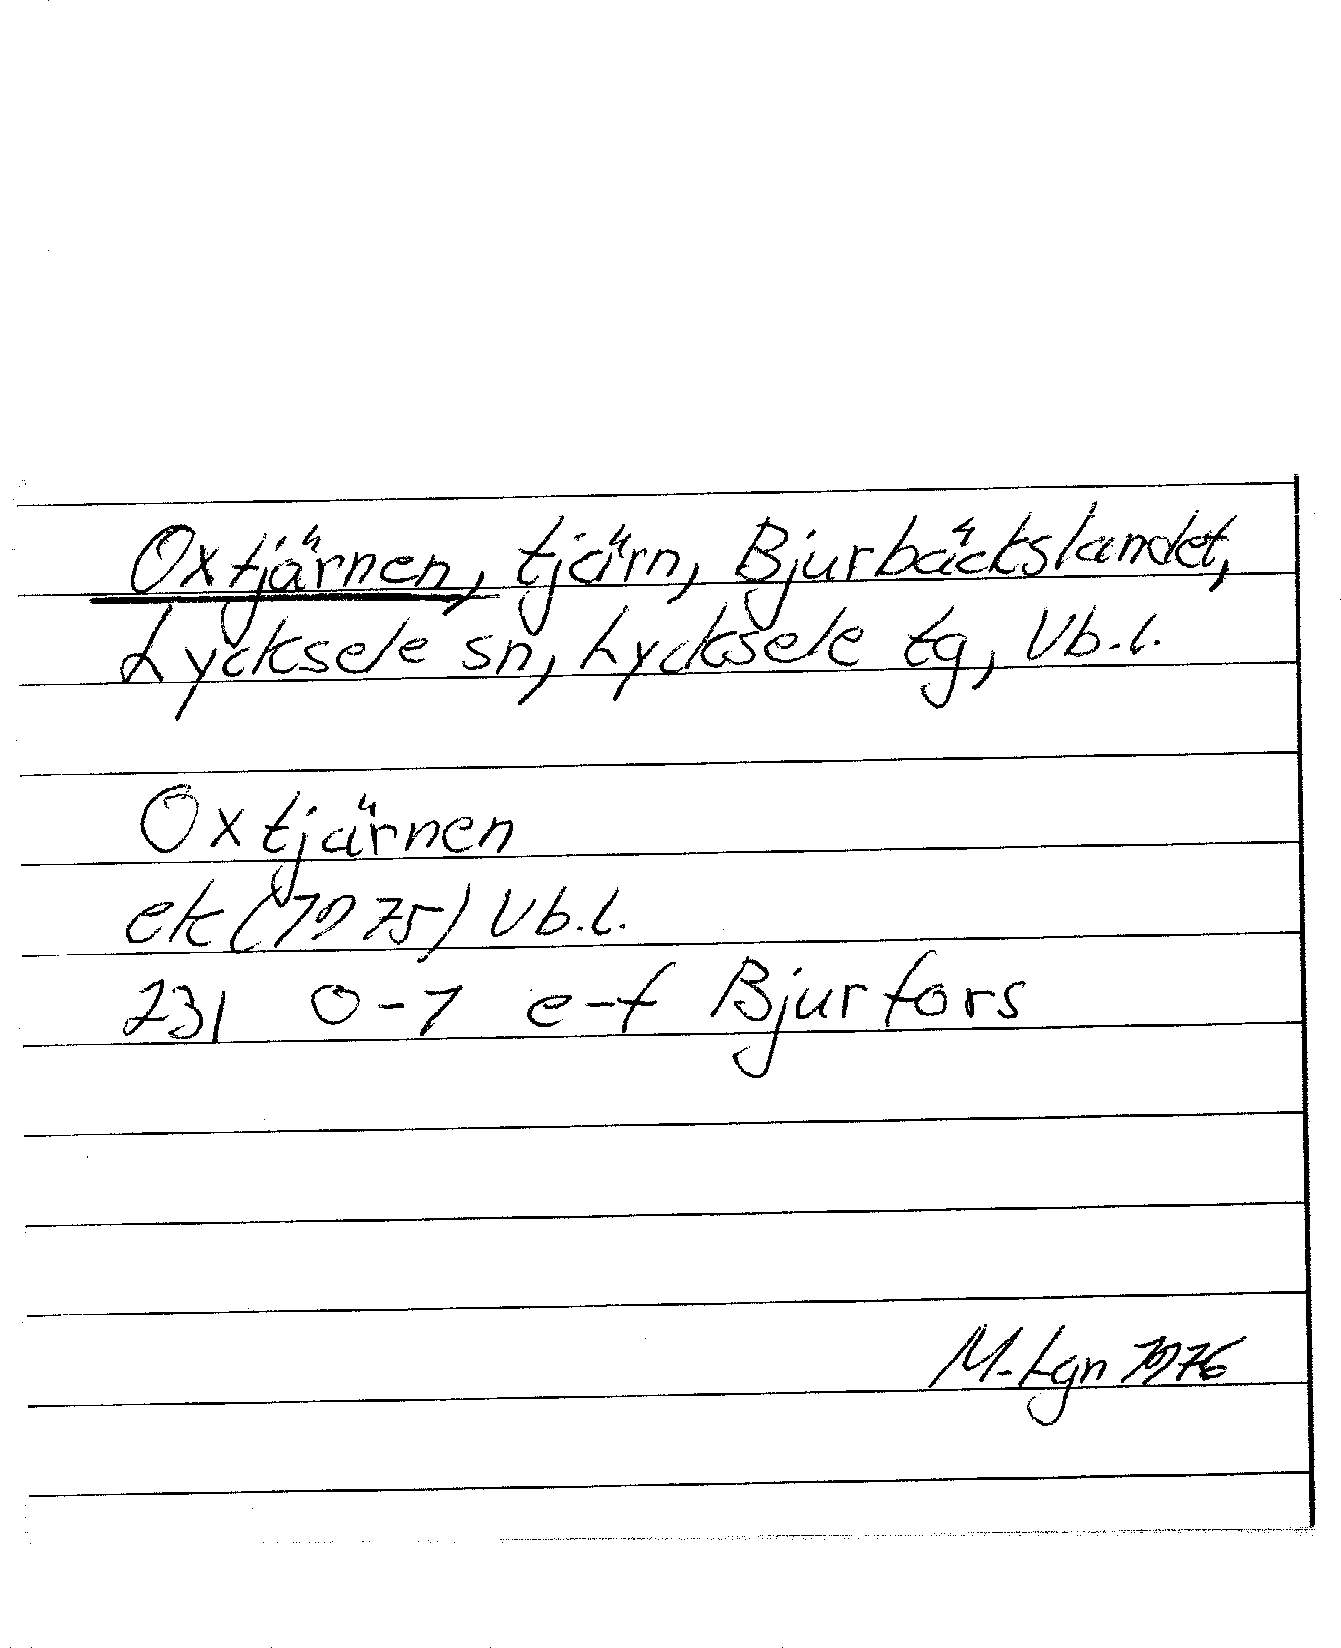 Oxtjärnen, tjärn, Bjurbäckslandet,
Lycksele sn, Lycksele tg, Vb.l.
Oxtjärnen
ek (1975) Vb.l.
231 0-1 e-f Bjurfors
M-Lgn 1976